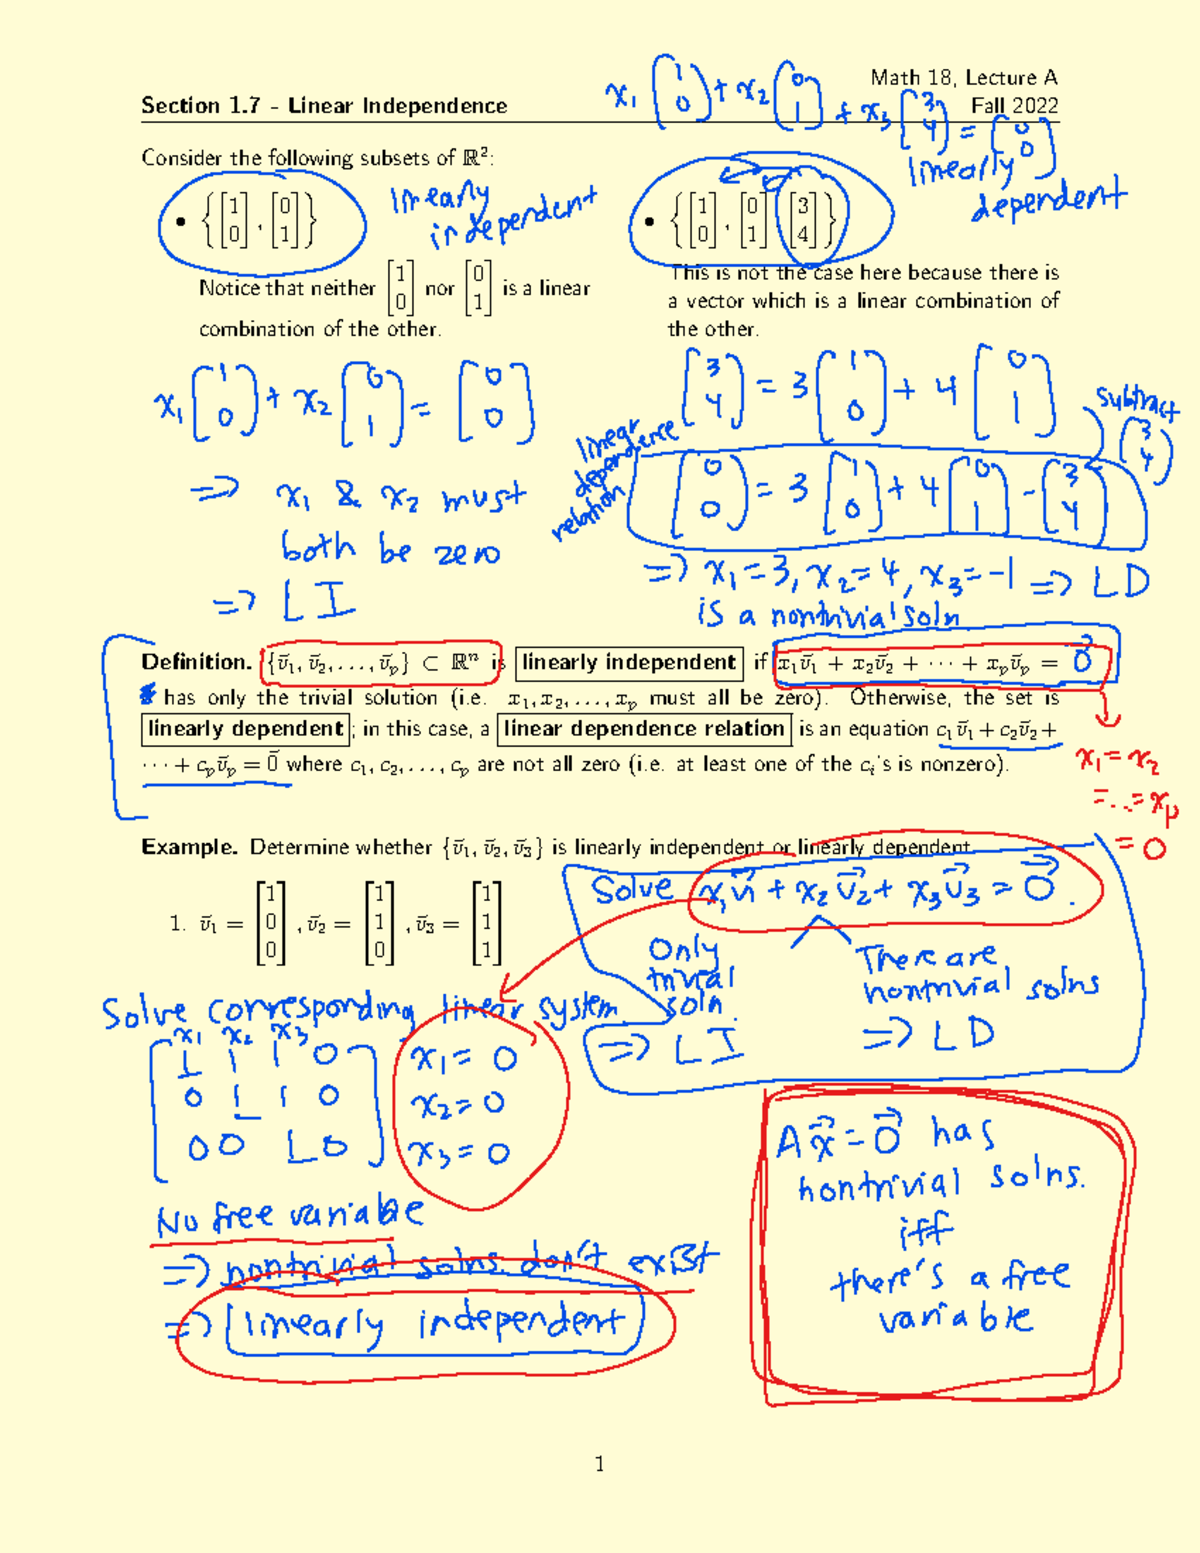 Math 18, Lecture A
Section 1.7 - Linear Independence
Fall 2022
x₁ [1 0] + x₂ [0 1] + x₃ [3 4] = [0 0]
linearly dependent
Consider the following subsets of ℝ²:
• {[1 0], [0 1]}
linearly independent
Notice that neither [1 0] nor [0 1] is a linear
combination of the other.
x₁ [1 0] + x₂ [0 1] = [0 0]
⇒ x₁ & x₂ must
both be zero
⇒ LI
• {[1 0], [0 1] [3 4]}
This is not the case here because there is
a vector which is a linear combination of
the other.
[3 4] = 3 [1 0] + 4 [0 1]
subtract [3 4]
linear
dependence
relation
[0 0] = 3 [1 0] + 4 [0 1] - [3 4]
⇒ x₁ = 3, x₂ = 4, x₃ = -1 ⇒ LD
is a nontrivial soln
Definition. {v̄₁, v̄₂, . . . , v̄ₚ} ⊂ ℝⁿ is linearly independent if x₁v̄₁ + x₂v̄₂ + · · · + xₚv̄ₚ = 0⃗
has only the trivial solution (i.e. x₁, x₂, . . . , xₚ must all be zero). Otherwise, the set is
linearly dependent; in this case, a linear dependence relation is an equation c₁v̄₁ + c₂v̄₂ +
· · · + cₚv̄ₚ = 0̄ where c₁, c₂, . . . , cₚ are not all zero (i.e. at least one of the cᵢ's is nonzero).
x₁ = x₂
= . . = xₚ
= 0
Example. Determine whether {v̄₁, v̄₂, v̄₃} is linearly independent or linearly dependent.
1. v̄₁ = [1 0 0], v̄₂ = [1 1 0], v̄₃ = [1 1 1]
Solve x₁v⃗₁ + x₂v⃗₂ + x₃v⃗₃ = 0⃗.
Only
trivial
soln.
⇒ LI
There are
nontrivial solns
⇒ LD
Solve corresponding linear system
x₁ x₂ x₃
1 1 1 0
0 1 1 0
0 0 1 0
x₁ = 0
x₂ = 0
x₃ = 0
No free variable
⇒ nontrivial solns don't exist
⇒ linearly independent
Ax⃗ = 0⃗ has
nontrivial solns.
iff
there's a free
variable
1